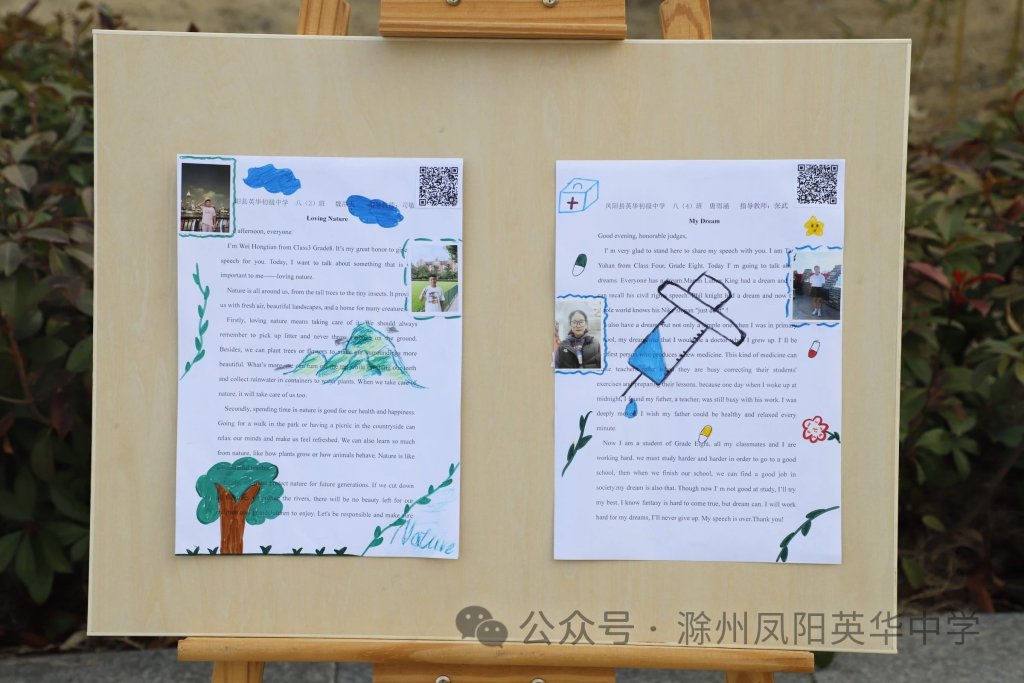 阳县英华初级中学 八（3）班
Loving Nature
afternoon, everyone.
I'm Wei Hongtian from Class3 Grade8. It's my great honor to
speech for you. Today, I want to talk about something that is
important to me——loving nature.
Nature is all around us, from the tall trees to the tiny insects. It
us with fresh air, beautiful landscapes, and a home for many creatures.
Firstly, loving nature means taking care of it. We should always
remember to pick up litter and never throw on the ground.
Besides, we can plant trees or flowers to make our surroundings more
beautiful. What's more, we can turn off the tap while brushing our teeth
and collect rainwater in containers to water plants. When we take care of
nature, it will take care of us too.
Secondly, spending time in nature is good for our health and happiness.
Going for a walk in the park or having a picnic in the countryside can
relax our minds and make us feel refreshed. We can also learn so much
from nature, like how plants grow or how animals behave. Nature is like
protect nature for future generations. If we cut down
the rivers, there will be no beauty left for our
to enjoy. Let's be responsible and make sure
Nature
凤阳县英华初级中学 八（4）班 唐雨涵 指导教师：张武
My Dream
Good evening, honorable judges,
I' m very glad to stand here to share my speech with you. I am
Yuhan from Class Four, Grade Eight. Today I' m going to talk
dreams. Everyone has a dream.Martin Luther King had a dream and
can recall his civil rights speech. Phil knight had a dream and now
whole world knows his Nike slogan "just do it"
also have a dream, but not only a simple one. When I was in primary
school, my dream was that I would be a doctor when I grew up. I' ll be
first person who produces a new medicine. This kind of medicine can
teachers they are busy correcting their students'
exercises and preparing their lessons. because one day when I woke up at
midnight, I found my father, a teacher, was still busy with his work. I was
deeply moved. I wish my father could be healthy and relaxed every
minute.
Now I am a student of Grade Eight, all my classmates and I are
working hard. we must study harder and harder in order to go to a good
school, then when we finish our school, we can find a good job in
society.my dream is also that. Though now I' m not good at study, I'll try
my best. I know fantasy is hard to come true, but dream can. I will work
hard for my dreams, I'll never give up. My speech is over.Thank you!
公众号 · 滁州凤阳英华中学